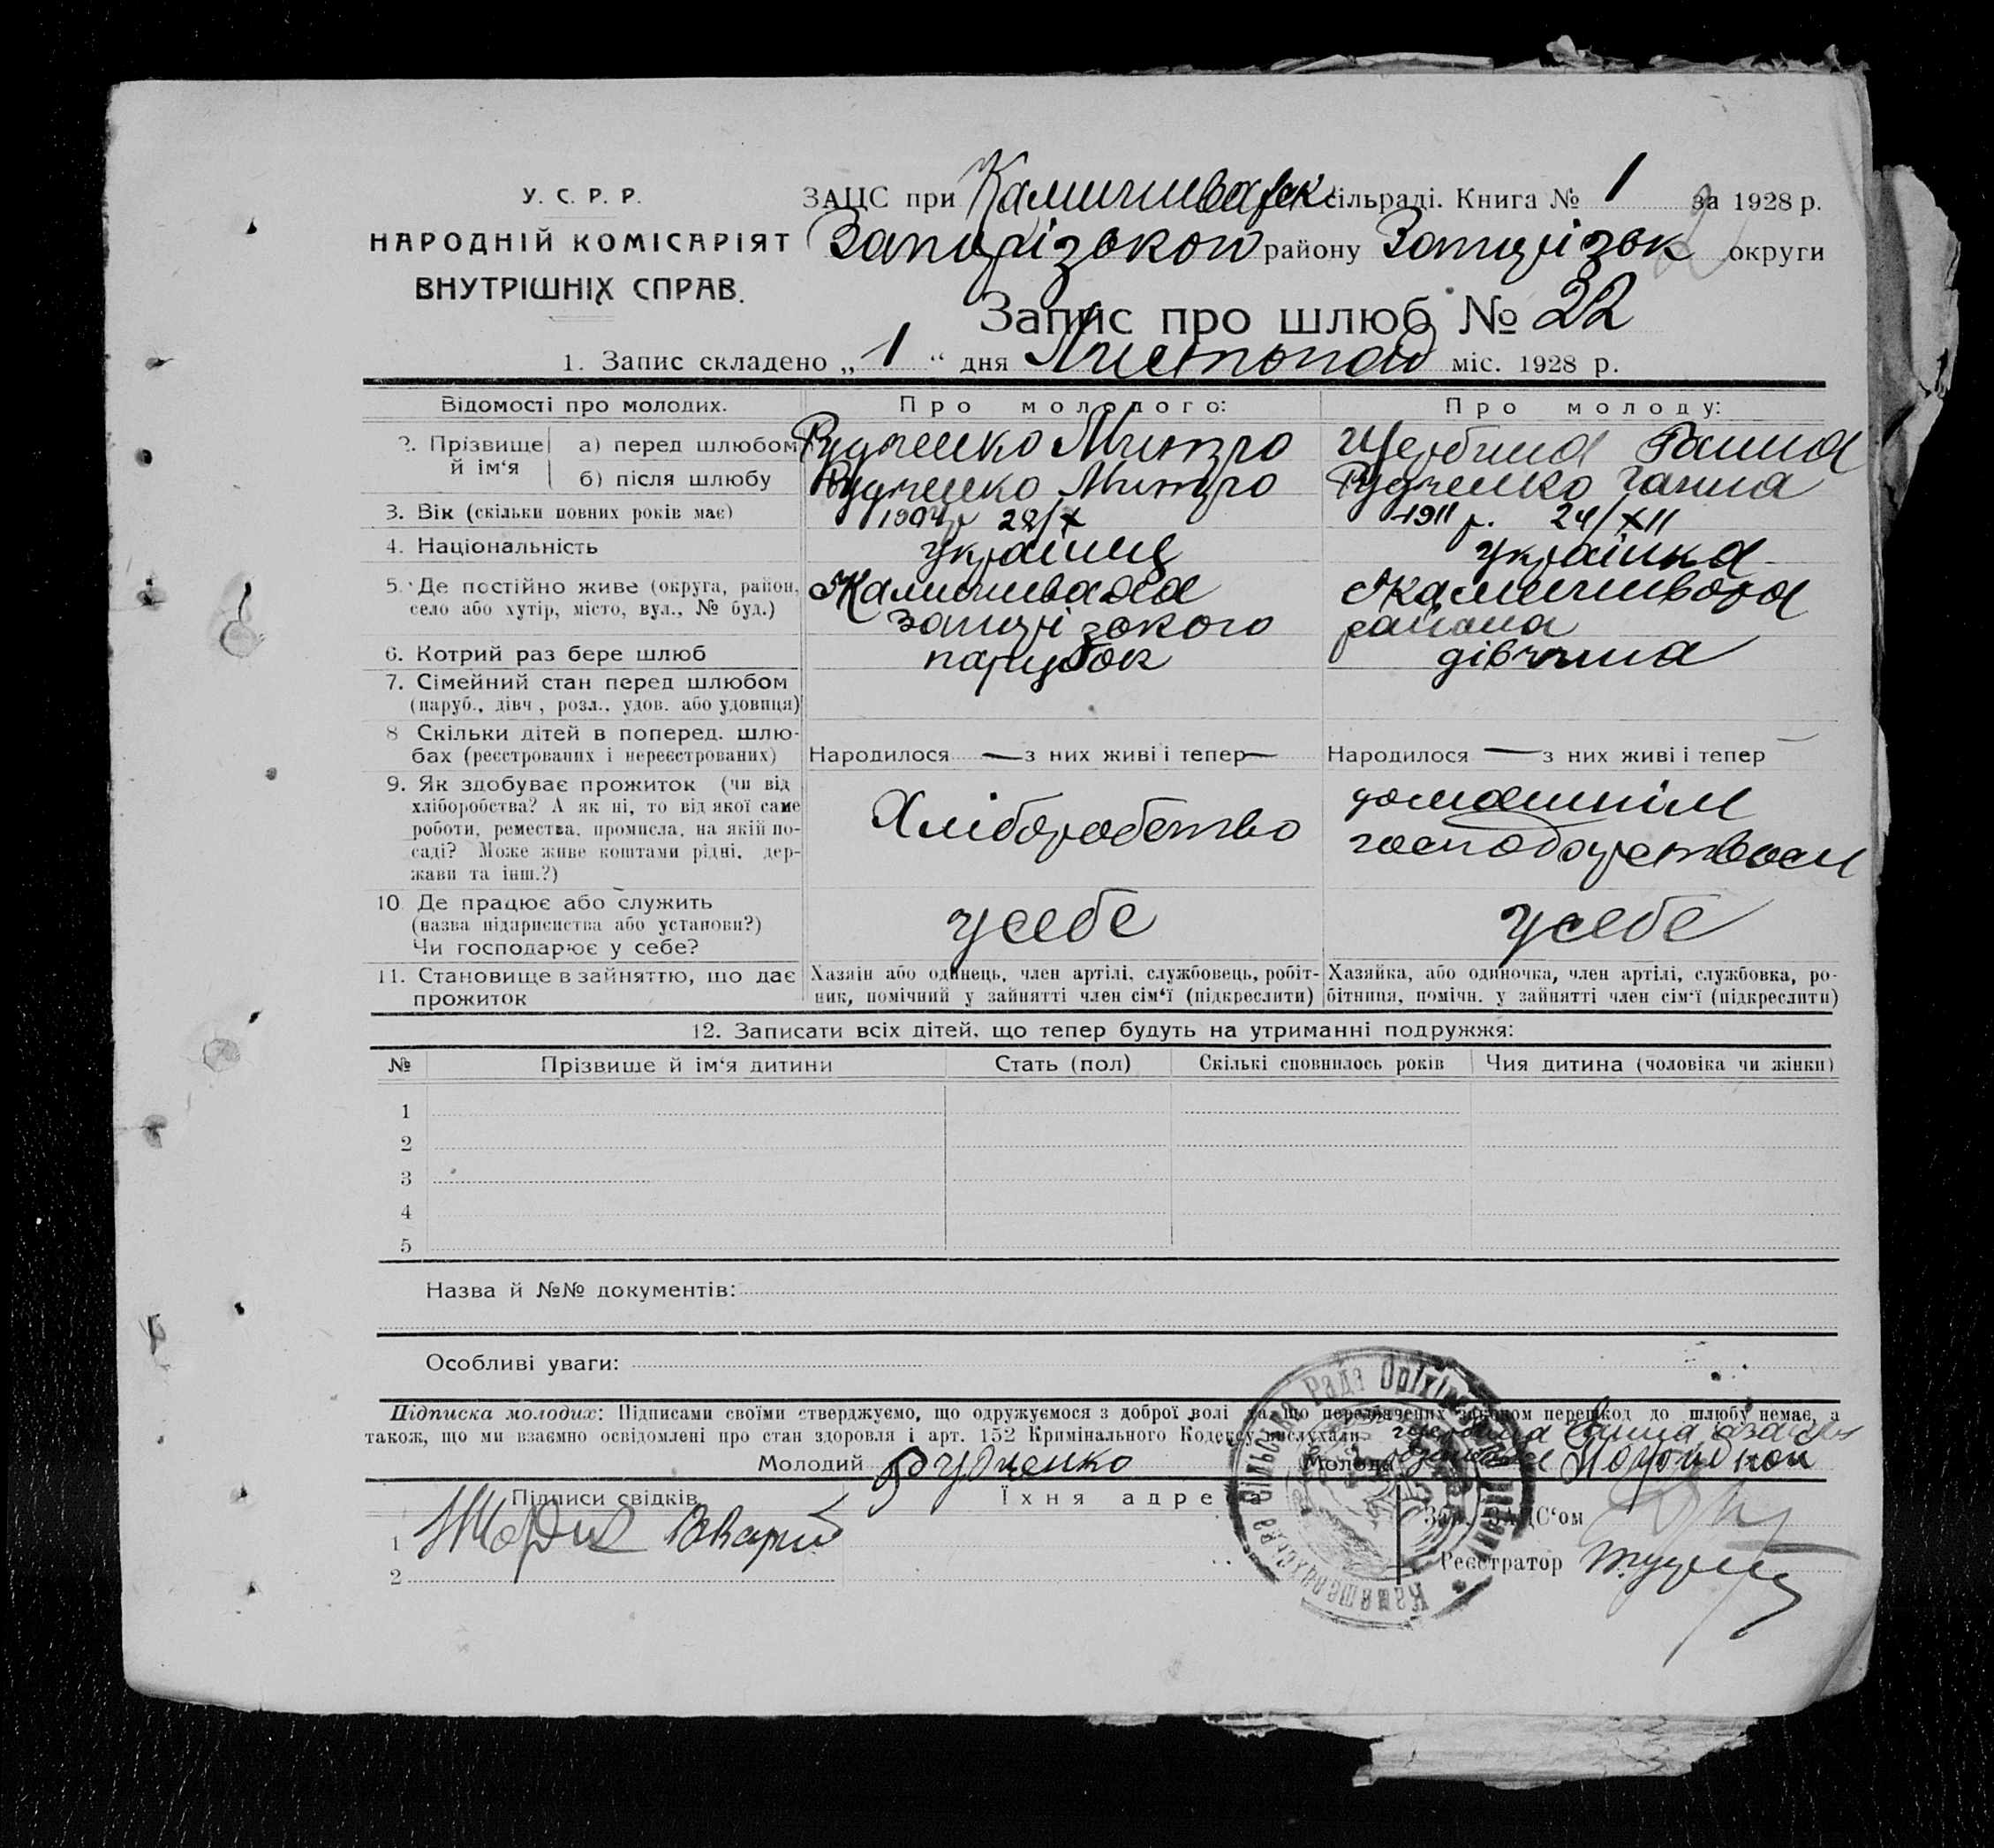 У. С. Р. Р.
НАРОДНІЙ КОМІСАРІЯТ
ВНУТРІШНІХ СПРАВ.
ЗАЦС при Камишевахськ сільраді. Книга № 1 за 1928 р.
Запорізького району Запорізьк округи
Запис про шлюб № 22
1. Запис складено „ 1 “ дня Листопад міс. 1928 р.
Відомості про молодих. Про молодого: Про молоду:
2. Прізвище й ім‘я а) перед шлюбом Рудченко Митро Щербина Ганна
б) після шлюбу Рудченко Митро Рудченко Ганна
3. Вік (скільки повних років має) 28/X 1911 р. 24/XII
4. Національність українц українка
5. Де постійно живе (округа, район, Камишеваха Камишеваха
село або хутір, місто, вул., № буд.) Запорізького района
6. Котрий раз бере шлюб парубок дівчина
7. Сімейний стан перед шлюбом
(паруб., дівч., розл., удов. або удовиця)
8 Скільки дітей в поперед. шлю-
бах (реєстрованих і нереєстрованих) Народилося — з них живі і тепер — Народилося — з них живі і тепер —
9. Як здобуває прожиток (чи від
хліборобства? А як ні, то від якої саме
роботи, ремества, промисла, на якій по-
саді? Може живе коштами рідні, дер-
жави та інш.?)
Хліборобство
домашнім
господарством
10. Де працює або служить
(назва підприємства або установи?)
Чи господарює у себе?
у себе у себе
11. Становище в зайняттю, що дає
прожиток
Хазяїн або одинець, член артілі, службовець, робіт-
ник, помічний у зайнятті член сім‘ї (підкреслити)
Хазяйка, або одиночка, член артілі, службовка, ро-
бітниця, помічн. у зайнятті член сім‘ї (підкреслити)
12. Записати всіх дітей, що тепер будуть на утриманні подружжя:
№ Прізвище й ім‘я дитини Стать (пол) Скількі сповнилось років Чия дитина (чоловіка чи жінки)
1
2
3
4
5
Назва й №№ документів:
Особливі уваги:
Підписка молодих: Підписами своїми стверджуємо, що одружуємося з доброї волі та що передбачених законом перешкод до шлюбу немає, а
також, що ми взаємно освідомлені про стан здоровля і арт. 152 Кримінального Кодексу вислухали
Молодий Рудченко Молода
Щербина Ганна
Підписи свідків Їхня адреса
Зав. ЗАЦС‘ом
1
2
Реєстратор
Камишеваська Сільська Рада Оріхівськ